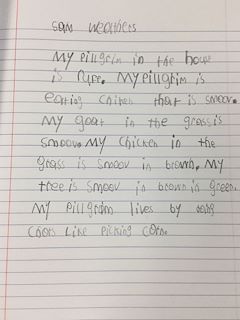 sam weathers
My Pillgrim in the house
is Ryfe. My Pillgrim is
eatting chiken that is smoov.
My goat in the grass is
smoov. My Chicken in the
grass is smoov in brown. My
tree is smoov in brown in green.
My Pillgrim lives by doing
chors like picking corn.